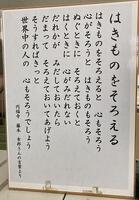 はきものをそろえる
はきものをそろえると 心もそろう
心がそろうと はきものもそろう
ぬぐときに そろえておくと
はくときに 心がみだれない
だれかが みだしておいたら
だまって そろえておいてあげよう
そうすればきっと
世界中の人の 心もそろうでしょう